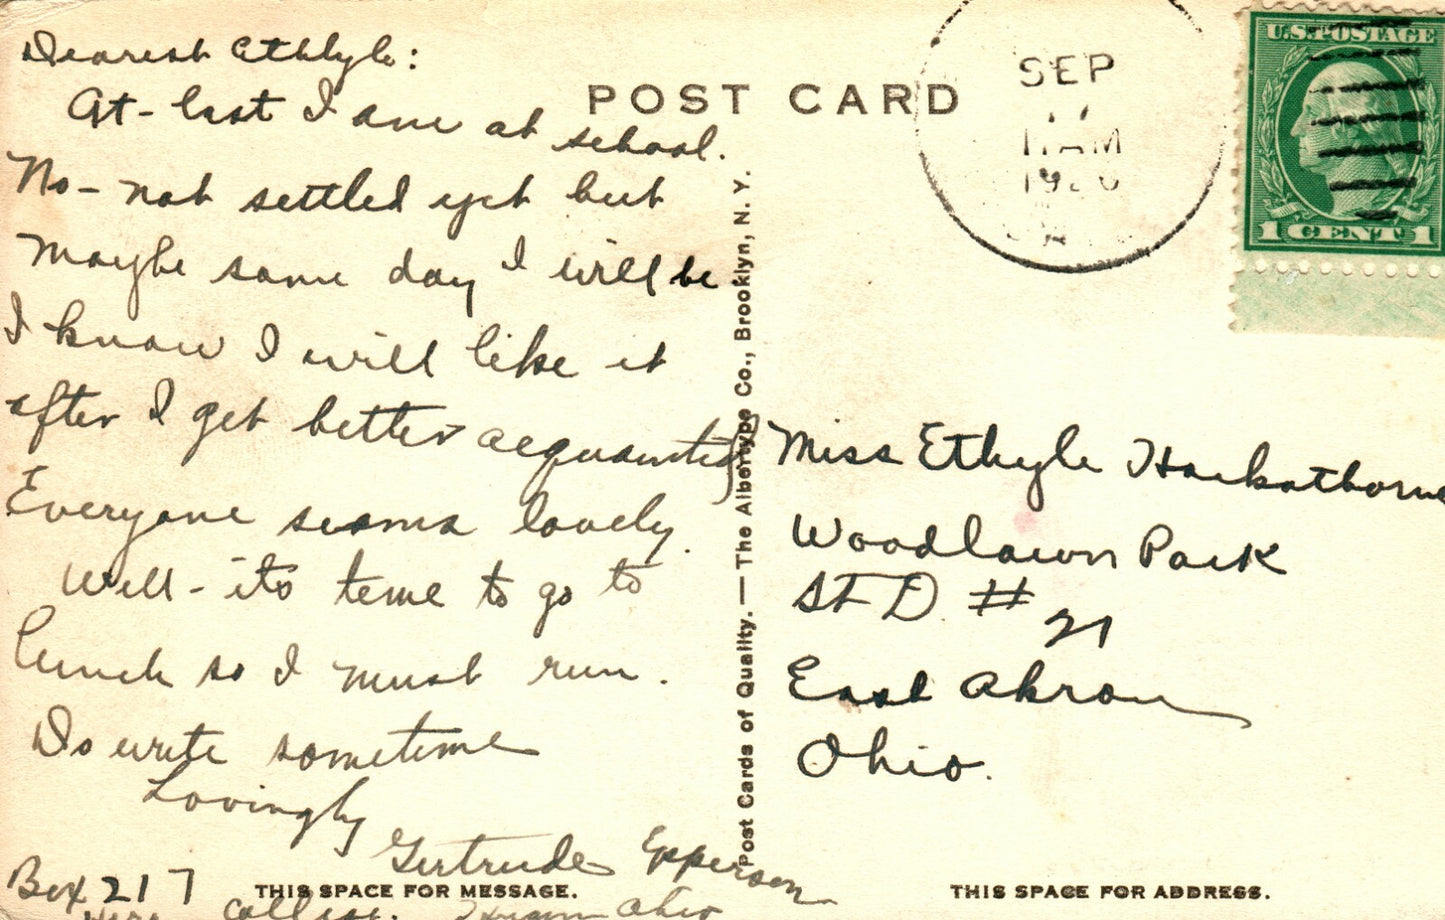 Dearest Ethlyle:
At-last I am at school.
No- not settled yet but
Maybe some day I will be
I know I will like it
after I get better acquainted
Everyone seems lovely.
Well- its time to go to
lunch so I must run.
Do write sometime
Lovingly
Gertrude Epperson
Box 217
College. Ohio
THIS SPACE FOR MESSAGE.
POST CARD
Post Cards of Quality. — The Albertype Co., Brooklyn, N. Y.
SEP
11 AM
U.S. POSTAGE
1 CENT 1
Miss Ethyle Hackathorne
Woodlawn Park
St D # 21
East Akron
Ohio.
THIS SPACE FOR ADDRESS.